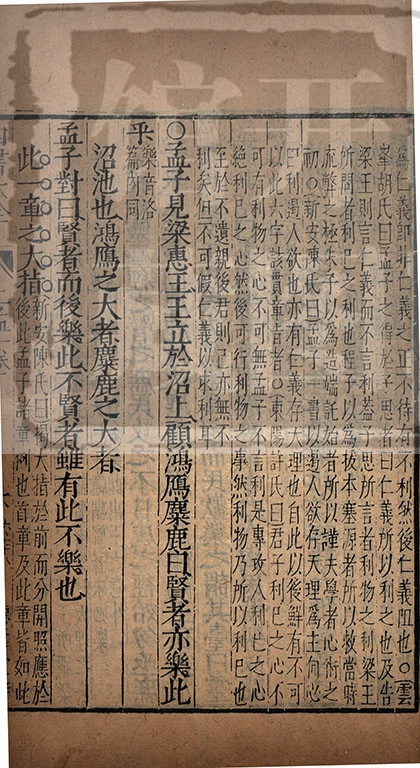 為仁義即非仁義之正不待有不利然後仁義阻也○雲
峯胡氏曰孟子之得於子思者曰仁義所以利之也及告
梁王則言仁義而不言利蓋子思所言者利物之利梁王
所問者利己之利也程子以為拔本塞源者所以救當時
流弊之極朱子以為造端託始者所以謹夫學者心術之
初○新安陳氏曰孟子一書以遏人欲存天理為主何必
曰利遏人欲也亦有仁義存天理也自此以後鮮有不可
以此六字該貫章旨者○東陽許氏曰君子利己之心不
可有利物之心不可無孟子不言利是專攻人利己之心
絶利己之心然後可行利物之事然利物乃所以利己也
至於不遺親後君則己亦
利矣但不可假仁義以求利耳
○孟子見梁惠王王立於沼上顧鴻鴈麋鹿曰賢者亦樂此
乎樂音洛
篇內同
沼池也鴻鴈之大者麋鹿之大者
孟子對曰賢者而後樂此不賢者雖有此不樂也
此一章之大指新安陳氏曰揭大指於前而分開照應於
後此孟子諸章例也首章及此章皆如此